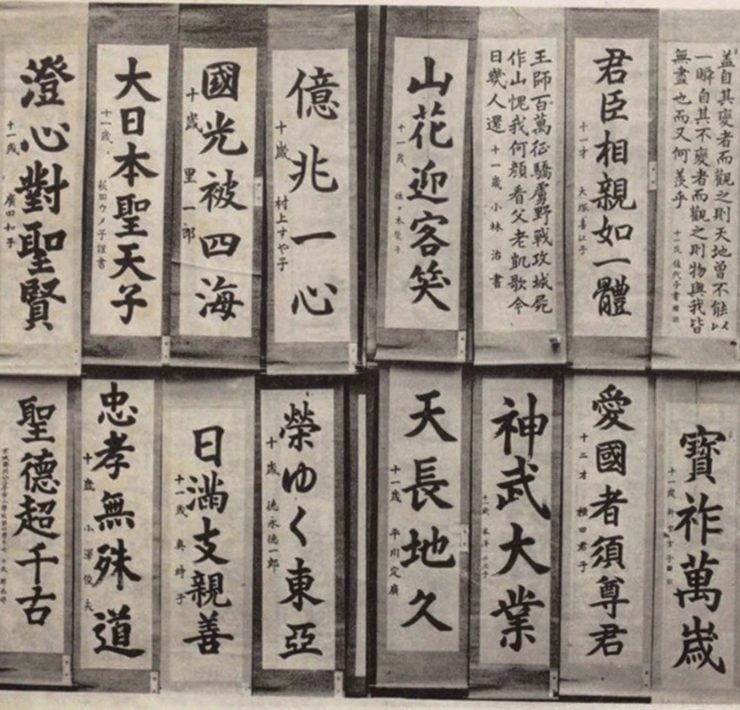 盖自其変者而觀之則天地曾不能以
一瞬自其不変者而觀之則物與我皆
無盡也而又何羨乎
十一歳 佳代子書
君臣相親如一體
十一才 大塚喜江子
王師百萬征驕虜野戰攻城屍
作山愧我何顔看父老凱歌今
日幾人還 十一歳 小林 治書
山花迎客笑
十一歳 佐々木
億兆一心
十歳 村上すや子
國光被四海
十歳 里一郎
大日本聖天子
十一歳 秋田ウメ子謹書
澄心對聖賢
十一歳 廣田和子
寳祚萬歳
十一歳
愛國者須尊君
十二才 横田君子
神武大業
天長地久
十一歳 平川定廣
榮ゆく東亞
十歳 徳永徳一郎
日滿支親善
十一歳 奥時子
忠孝無殊道
十歳 小澤俊夫
聖德超千古